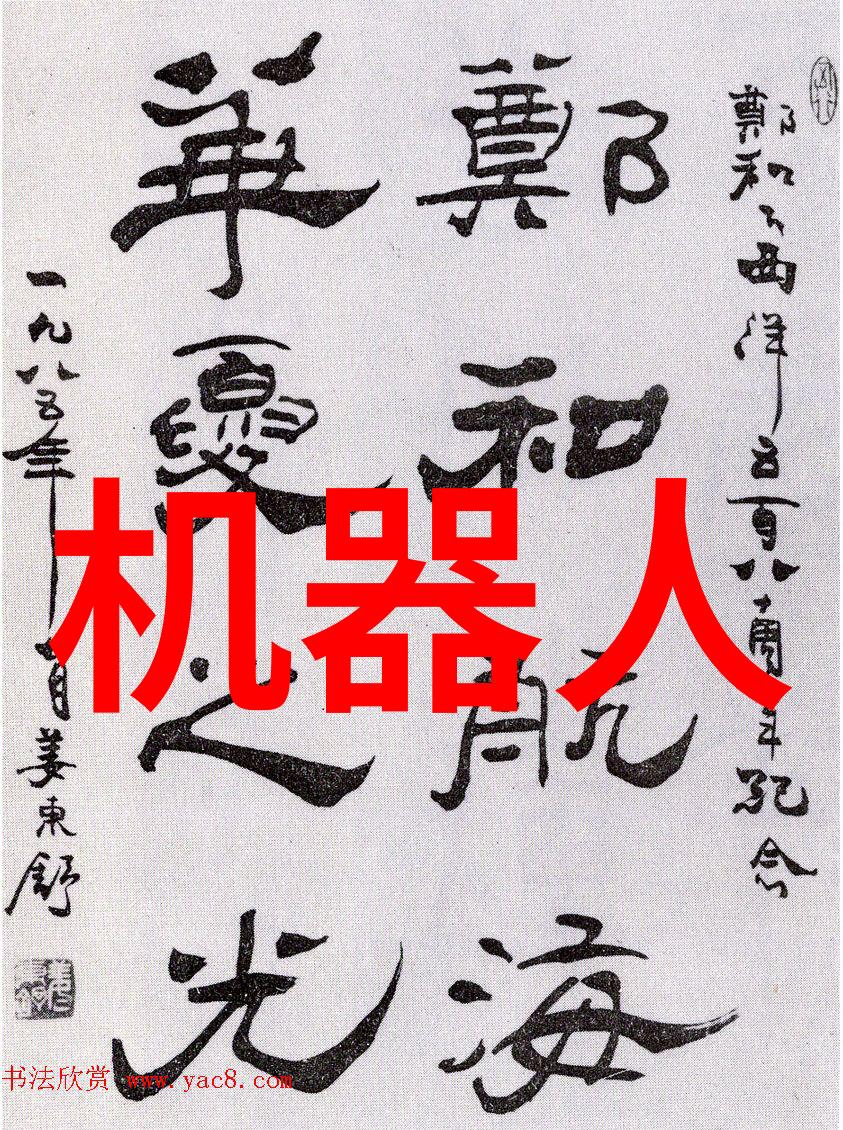 鄭和下西洋五百八十周年紀念
鄭和航海
華夏之光
一九八五年
姜東舒
机器人
书法欣赏 www.yac8.com